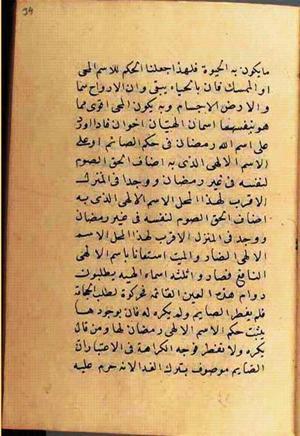 34
مايكون به الحيوة فلهذا جعلنا الحكم للاسم المحى
او الممسك فان بالحياء يبقى وان الارواح سما
والارض الاجسام وبه يكون المحى اقوى مما
هو بنفسهما اسمان الهيان اخوان فاذا ورد
على اسم الله رمضان فى حكم الصائم او على
الاسم الالهى الذى به اضاف الحق الصوم
لنفسه فى غير رمضان ووجدا فى المنزل
الاقرب لهذا المحل الاسم الالهى الذى به
اضاف الحق الصوم لنفسه فى غير رمضان
ووجد فى المنزل الاقرب لهذا المحل الاسم
الالهى الضار والميت استعانا باسم الالهى
النافع فصاروا ثلثة اسماء الهيه يطلبون
دوام هذه العين القائمه فحركوة لطلب الحجامة
فلم يفطر الصايم ولم يكره له فان بوجودها
يثبت حكم الاسم الالهى رمضان لها ومن قال
يكره ولا يفطر فوجه الكراهة فى الاعتبار ان
الصايم موصوف بترك الغدا لانه حرم عليه